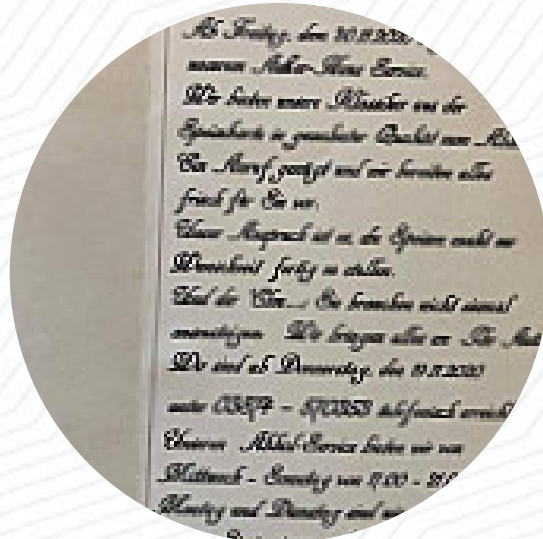 Ab Freitag, den 20.11.2020
unseren Außer-Haus Service.
Wir bieten unsere Klassiker aus der
Speisekarte in gewohnter Qualität zum
Ein Anruf genügt und wir bereiten alles
frisch für Sie vor.
Unser Anspruch ist es, die Speisen exakt zur
Wunschzeit fertig zu stellen.
Und der Clou... Sie brauchen nicht einmal
auszusteigen. Wir bringen alles an Ihr
Wir sind ab Donnerstag, den 19.11.2020
unter telefonisch
Unseren Abhol-Service bieten wir von
Mittwoch - Sonntag von 17.00 -
Montag und Dienstag sind wir